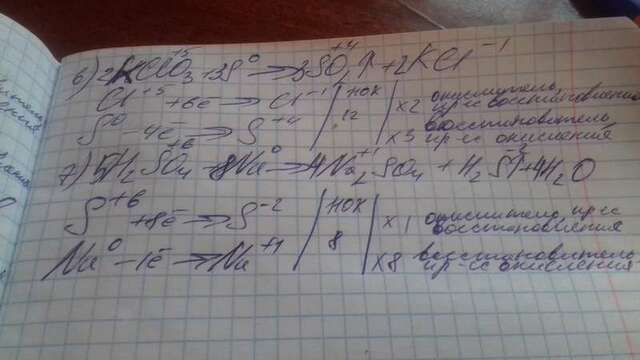 +5 0 +4 -1
6) 2KClO3 + 3S → 3SO2↑ + 2KCl
Cl+5 + 6e → Cl-1 | НОК | x2 окислитель,
пр-сс восстановления
S0 - 4e → S+4 | 12 | x3 восстановитель,
пр-сс окисления
+6 0 +1 -2
7) 5H2SO4 + 8Na → 4Na2SO4 + H2S↑ + 4H2O
S+6 + 8e → S-2 | НОК | x1 окислитель, пр-сс
восстановления
Na0 - 1e → Na+1 | 8 | x8 восстановитель
пр-сс окисления